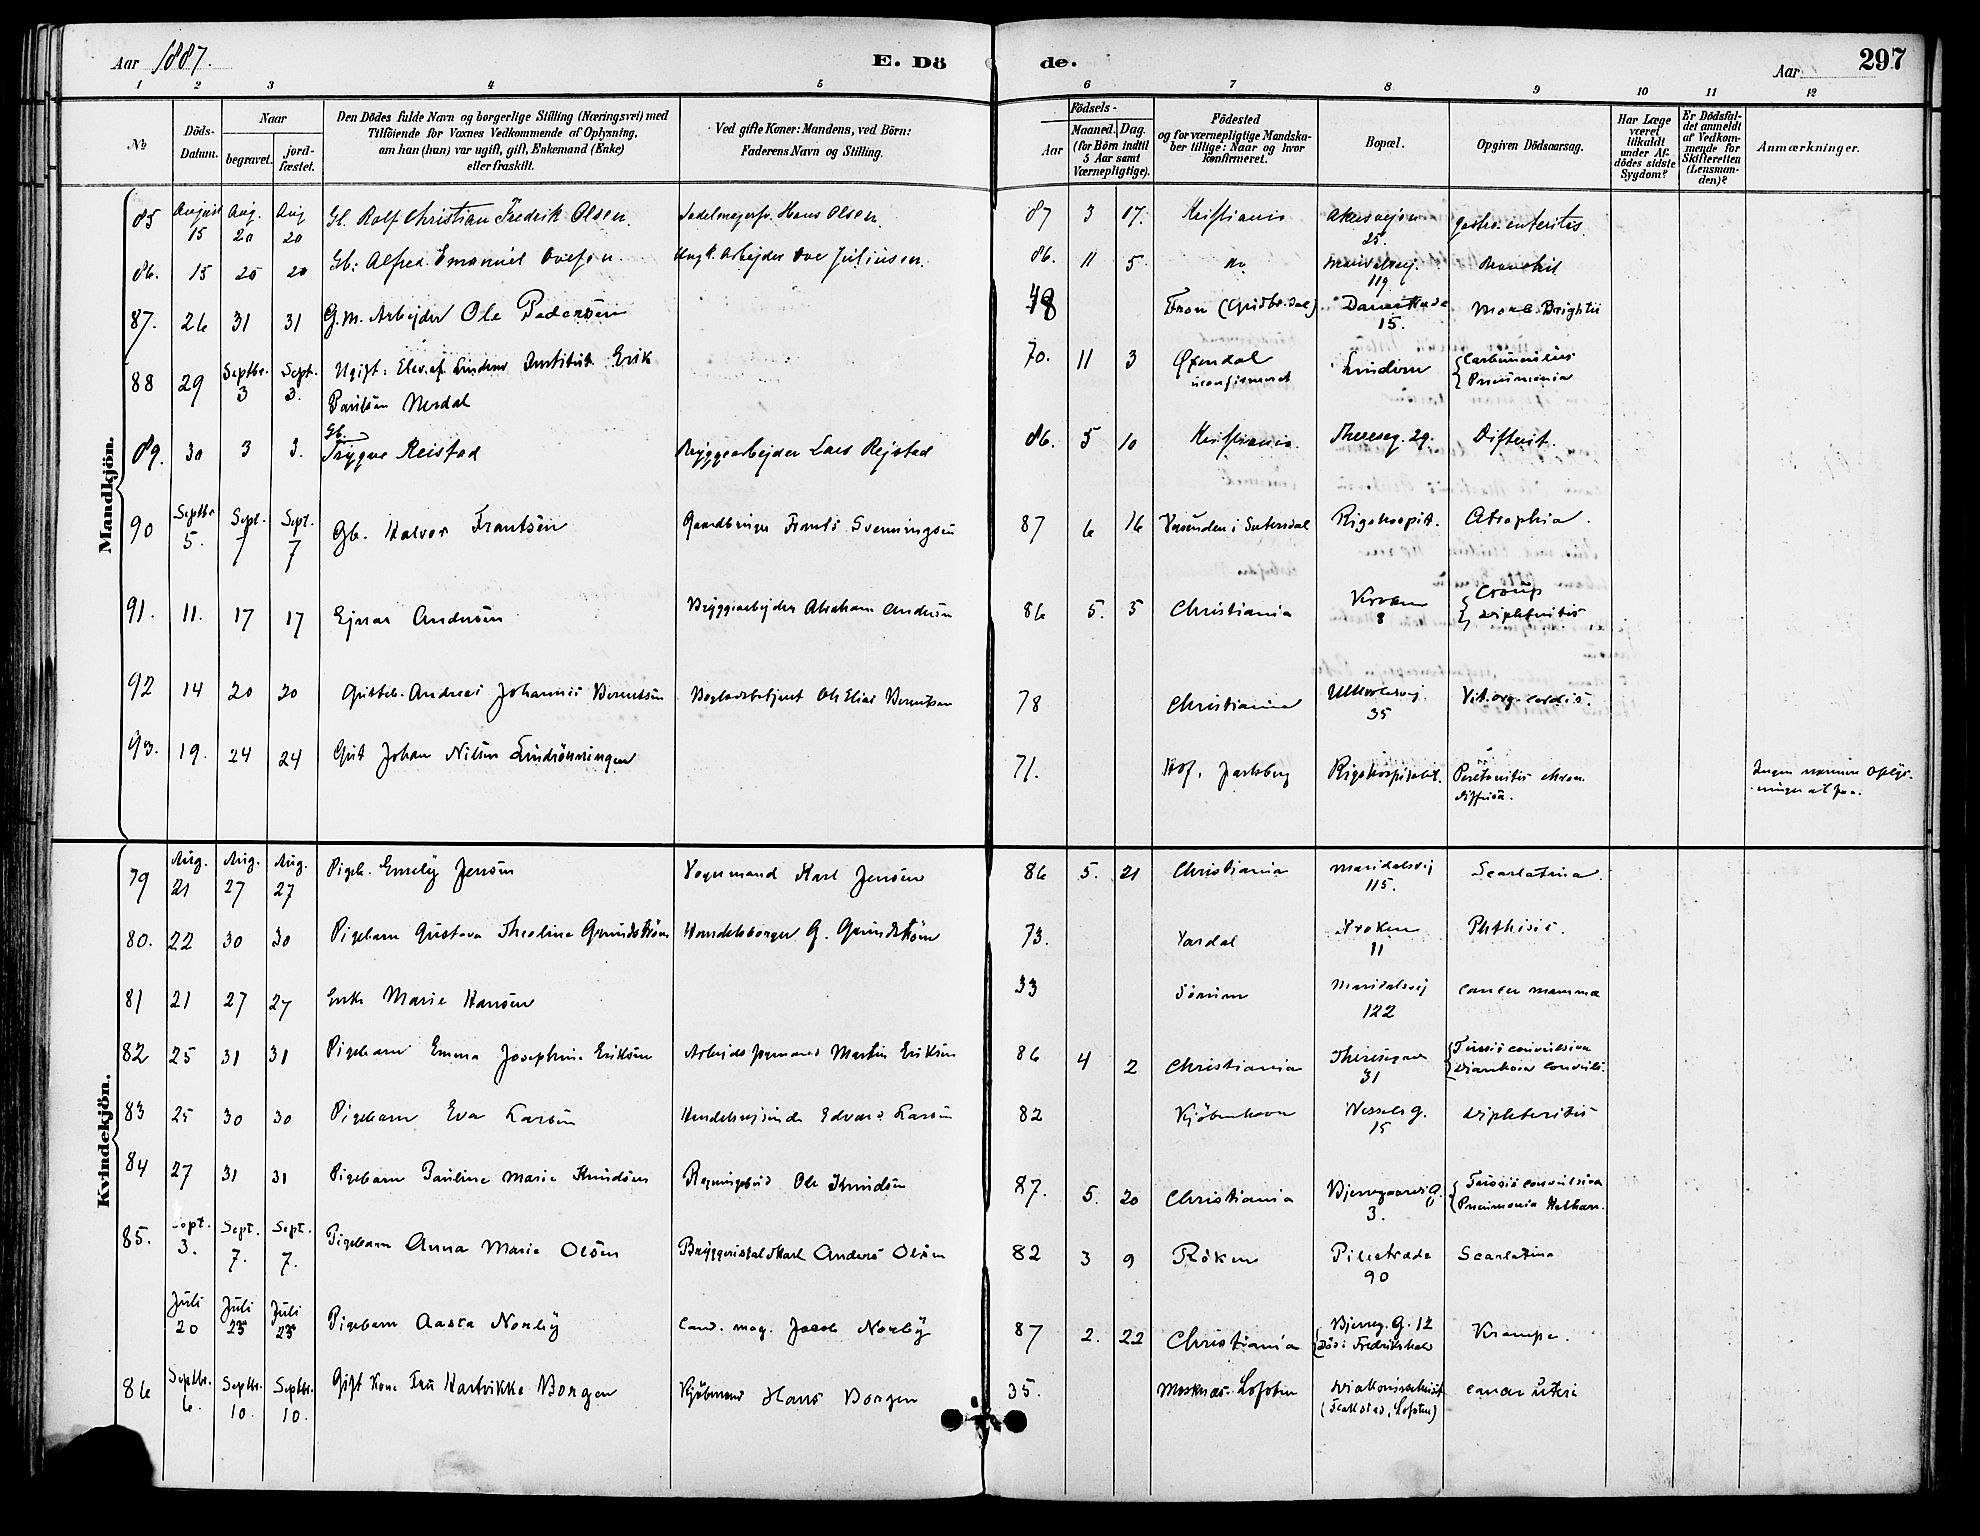 Aar 1887.
E. Dö
de.
Aar
297
1 2 3 4 5 6 7 8 9 10 11 12
No
Döds-
Datum.
Naar
begravet.
jord-
fæstet.
Den Dödes fulde Navn og borgerlige Stilling (Næringsvei) med
Tilföiende for Voxnes Vedkommende af Oplysning,
om han (hun) var ugift, gift, Enkemand (Enke)
eller fraskilt.
Ved gifte Koner: Mandens, ved Börn:
Faderens Navn og Stilling.
Födsels-
Aar
Maaned. Dag.
(for Börn indtil
5 Aar samt
Værnepligtige).
Födested
og for værnepligtige Mandska-
ber tillige: Naar og hvor
konfirmeret.
Bopæl.
Opgiven Dödsaarsag.
Har Læge
været
tilkaldt
under Af-
dödes sidste
Sygdom?
Er Dödsfal-
det anmeldt
af Vedkom-
mende for
Skifteretten
(Lensman-
den)?
Anmærkninger.
Mandkjön.
85 August 15 Aug. 20 Aug 20 Gb. Rolf Christian Fredrik Olsen. Hans Olsen. 87 3 17. Kristiania Akersvejen 25. Gastro-enteritis.
86. 15 20 20 Gb: Alfred Emanuel Ovesen. Arbejder Ove Juliussen. 86. 11 5 Do Maridalsvej. 119 Bronchit
87. 26 31 31 G.M. Arbejder Ole Pedersen 48 Fron (Gudbr.dal) 15. Morb. Brightii
88 29 Septbr. 3 Sept. 3. Ugift: Elev af Lindern Institut Erik
Paulsen Nerdal 70. 11 3 Øxendal
uconfirmeret Lindern Carbunculus
Pneumonia
89. 30 3 3. Gb.
Trygve Reistad Bryggearbejder Lars Rejstad 86. 5 10 Kristiania. Thereseg. 29. Difterit.
90 Septbr 5. Sept. 7 Sept. 7 Gb. Halvor Frantsen Gaardbruger Frants Svenningsen 87 6 16 i Sætersdal Rigshospit. Atrophia.
91. 11. 17 17 Ejnar Andersen Bryggearbejder Abraham Andersen 86 5. 5 Christiania 8 Croup
Diphteritis
92 14 20 20 Gutteb. Andreas Johannes Berentsen Ole Elias Berentsen 78 Christiania Ullevoldsvej 35 Vit. org. cordis.
93. 19. 24 24 Gut Johan Nilsen 71. Hof, Jarlsberg Rigshospitalet. Peritonitis chron.
diffusa. Ingen nærmere Oplys-
ninger at faa.
Kvindekjön.
79 Aug. 21 Aug. 27 Aug. 27 Pigeb. Emely Jensen Vognmand Karl Jensen 86 5. 21 Christiania Maridalsvej 115. Scarlatina.
80. 22 30 30 Pigebarn Gustava Theolina Grundstrøm Handelsborger G. Grundstrøm 73. Vardal Kroken 11 Phthisis.
81 21 27 27 Enke Marie Hansen 33 Sörum Maridalsvej 122 cancer mamma
82 25 31 31 Pigebarn Emma Josephine Eriksen Arbejdsformand Martin Eriksen 86 4 2 Christiania Theresegade 31 Tussis convulsiva
Diarrhoea convuls.
83 25 30 30 Pigebarn Eva Larsen Handelsrejsende Edvard Larsen 82 Kjöbenhavn Wessels g. 15 Diphteritis
84 27 31 31 Pigebarn Pauline Marie Knudsen Regningsbud Ole Knudsen 87. 5. 20 Christiania Bjerregaards G. 3. Tussis convulsiva
Pneumonia Katharr.
85. Sept. 3. Sept. 7. Sept. 7. Pigebarn Anna Marie Olsen Anders Olsen 82 3 9 Röken Pilestræde 90 Scarlatina
Juli 20 Juli 25 Juli 25 Pigebarn Aasta Norby Cand. mag. Jacob Norby 87 2. 22 Christiania Bjerreg. G. 12
Död i Fredrikshald Krampe.
86 Septbr. 6. Septbr. 10. Septbr. 10. Gift Kone Fru Hartvikke Borgen Kjöbmand Hans Borgen 35. Moskenæs Lofoten Diakonissehuset
cancer uteri